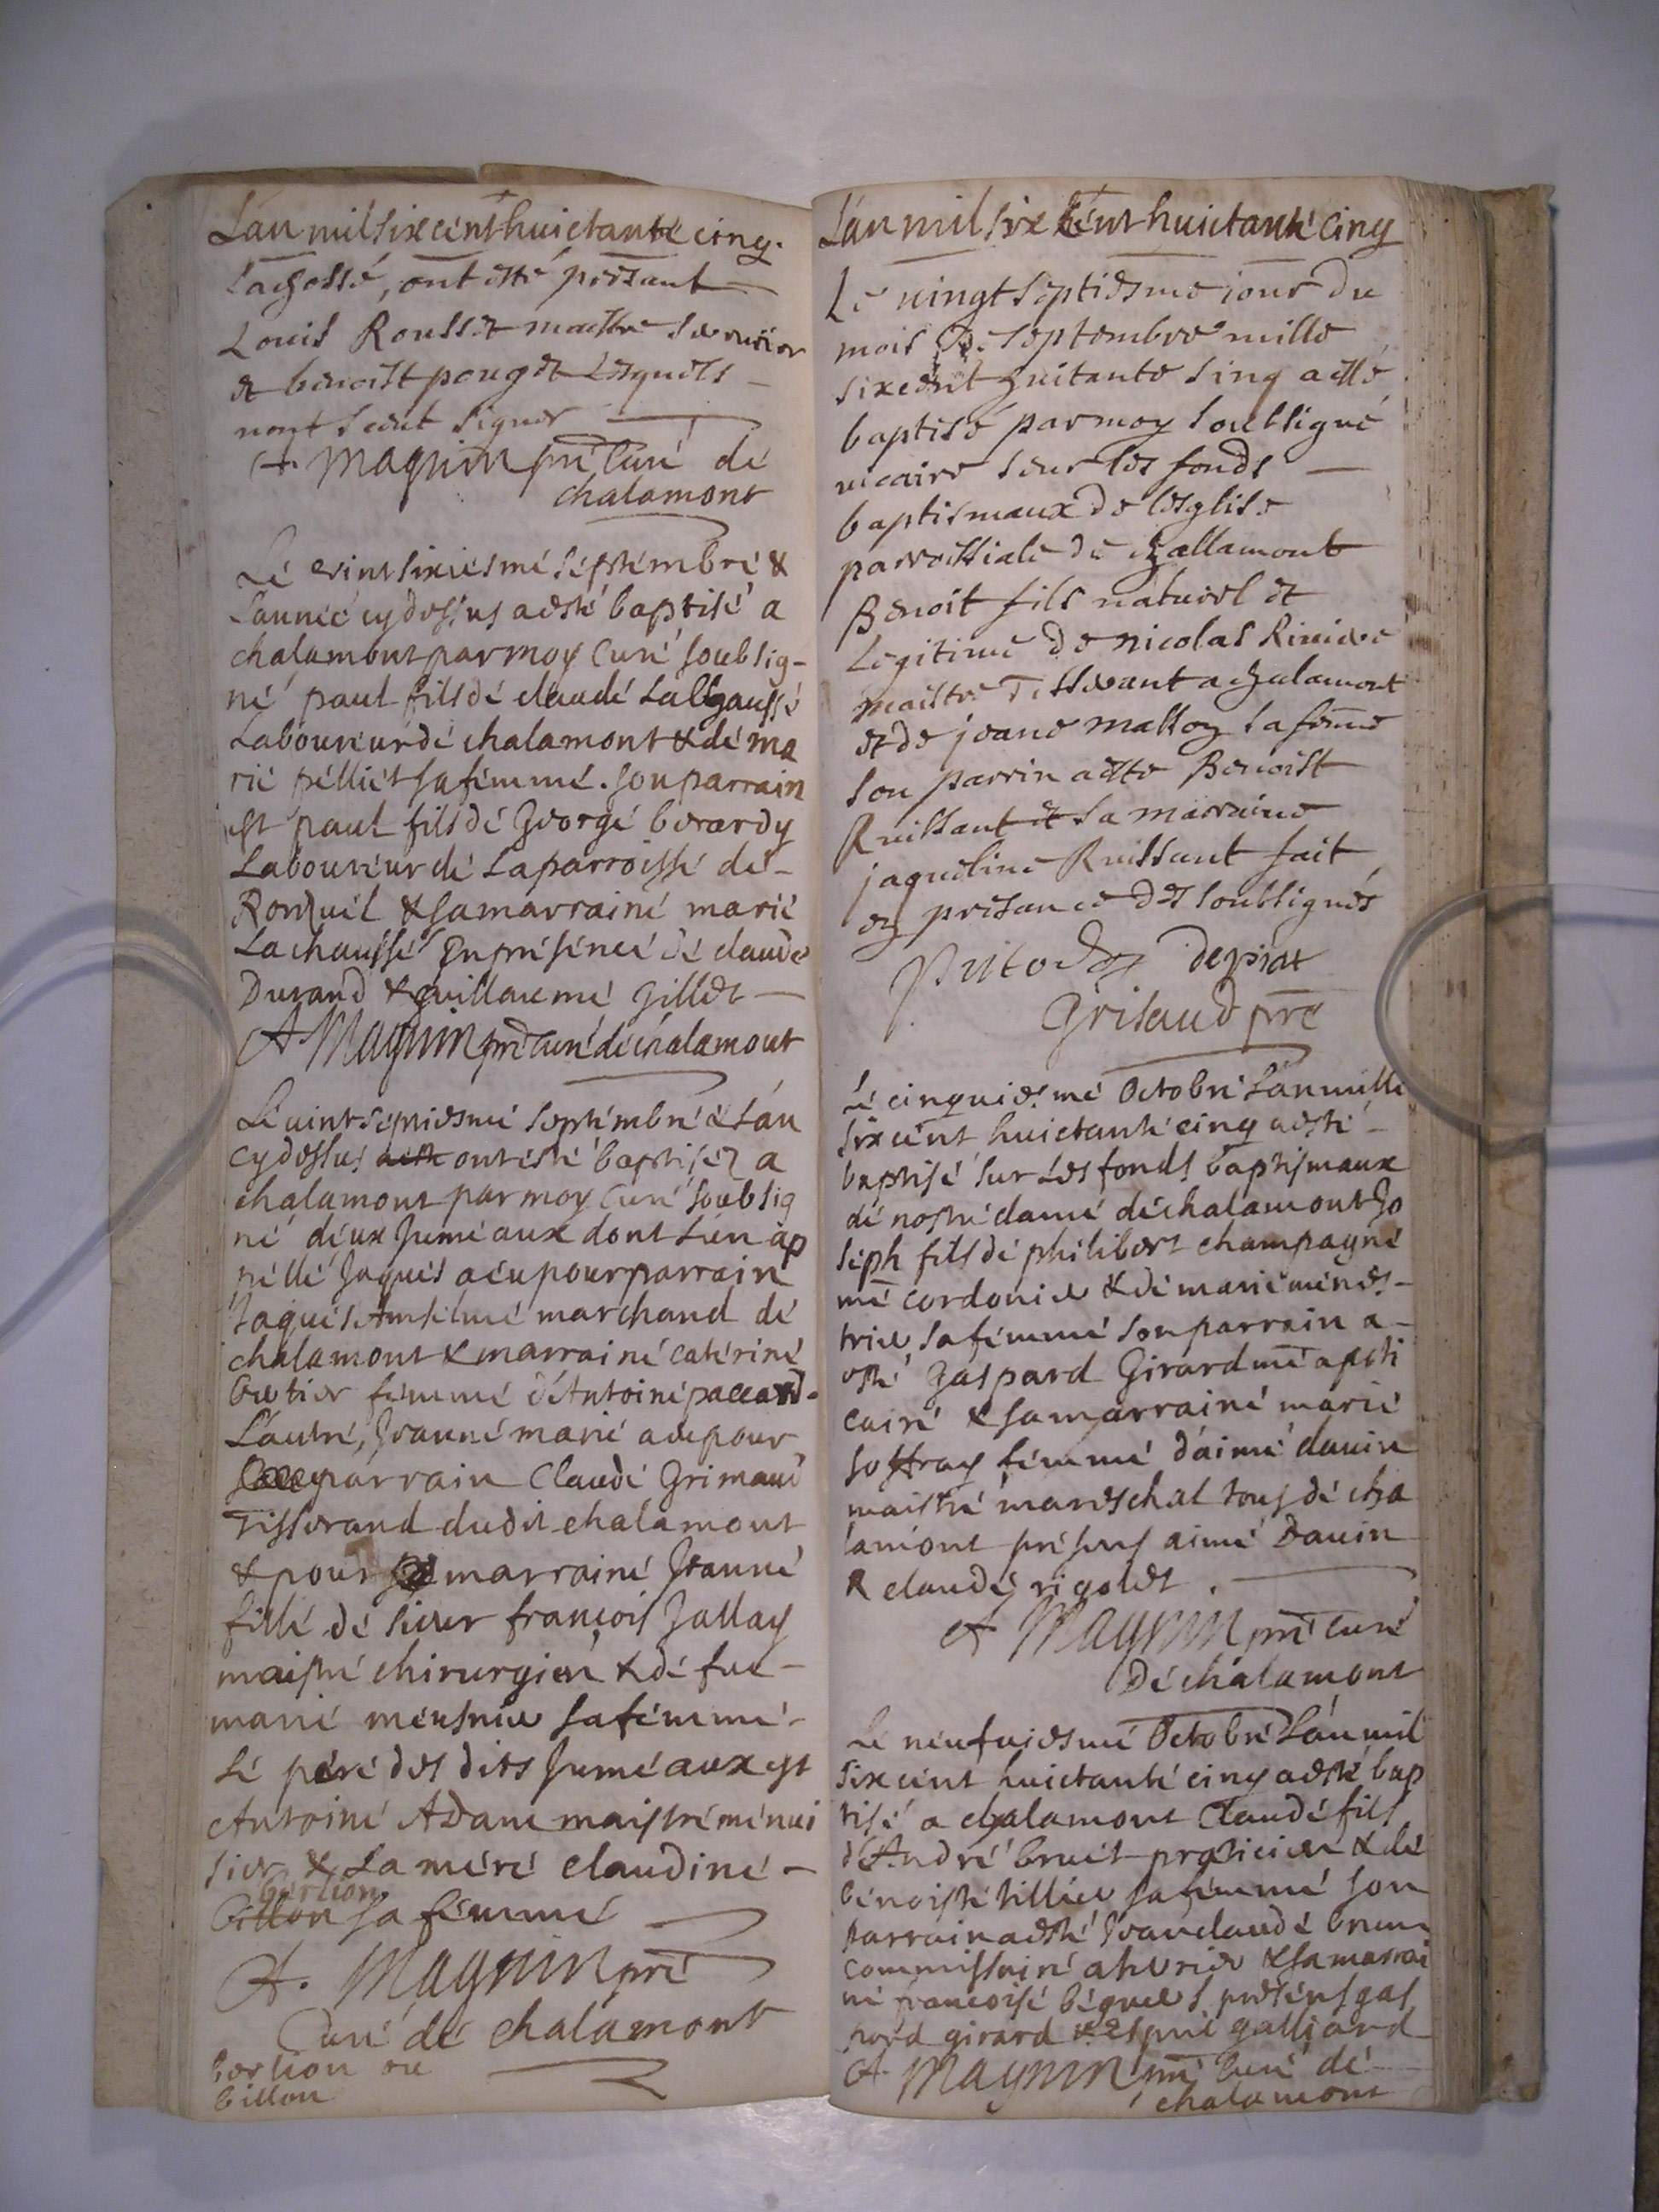 L'an mil six cent huictante cinq.
Lachossé, ont esté présant
Louis Rousset maistre serurier
et benoist pouget Lesquels
nont sceut signer
A. Magnin pre Curé de
chalamont
Le vint sixiesme septembre &
l'année cydessus a esté baptisé a
chalamont par moy Curé soubsig-
né paul fils de claude
Laboureur de chalamont & de ma
rie pelliet sa femme. son parrain
est paul fils de George berardy
Laboureur de la parroisse de
& sa marraine marie
La chaussé En présence de claude
Durand & guillaeme gillet
A Magnin pre Curé de chalamont
Le vint septiesme septembre & l'an
cydessus a esté ont esté baptisez a
chalamont par moy Curé soubsig
né deux Jumeaux dont l'un ap
pellé Jaques a eu pour parrain
Jaques Antelme marchand de
chalamont & marraine caterine
femme d'Antoine paccard.
L'autre, Jeanne marie a eu pour
parrain Claude Grimaud
Tisserand dudit chalamont
& pour marraine Jeanne
fille de sieur françois Jallay
maistre chirurgien & de fue
marie meusnier sa femme
Le pere des dits Jumeaux est
Antoine Adam maistre menui
sier & La mere claudine
berlion
billon sa femme
A. Magnin pre
Curé de chalamont
berlion ou
billon
L'an mil six Cent huictante Cinq
Le vingt septiesme jour du
mois De septembre mille
six cent huitante sinq a esté
baptisé par moy soubsigné
vicaire sur les fonds
baptismaux de lesglise
parroissiale de challamont
Benoit fils naturel et
Legitime de nicolas Riviere
maistre Tisserant a chalamont
et de jeane sa feme
son parrin a este Benoist
Ruissant et sa marraine
jaqueline Ruissant fait
en présance des soubsignés
depiat
Grisaud pre
Le cinquiesme Octobre L'an mille
six cent huictante cinq a esté
baptisé sur Les fonds baptismaux
de nostre dame de chalamont Jo
seph fils de philibert champagne
me cordonier & de marie menes-
trier sa femme son parrain a
esté Gaspard Girard me apoti
caire & sa marraine marie
soffray femme d'aimé dauin
maistre mareschal tous de cha
lamont présens aimé Dauin
& claude rigolet.
A Magnin pre Curé
De chalamont
Le neufuiesme Octobre L'an mil
six cent huictante cinq a esté bap
tisé a chalamont Claude fils
d'André bruet praticien & de
benoiste tillier sa femme son
parrain a esté Jean claude brun
commissaire & sa marrai
ne francoise présens gas
pard girard & galliard
A Magnin pre Curé de
chalamont